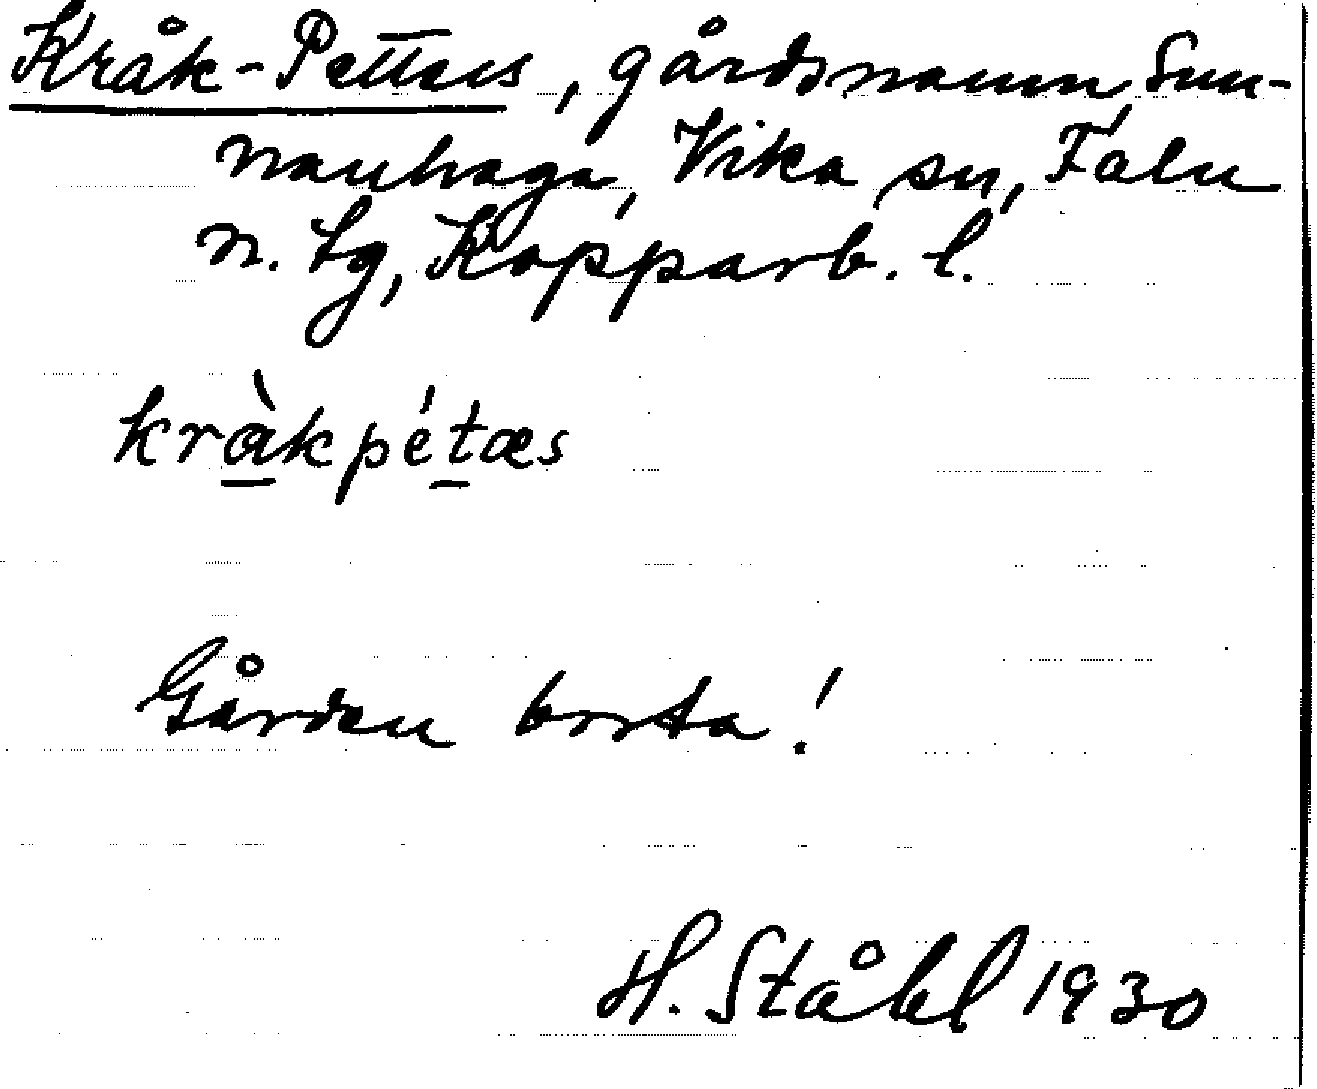 Kråk-Petters, gårdsnamn, Sun-
nanhaga, Vika sn, Falu
n. tg, Kopparb. l.
kràkpétæs
Gården borta!
H. Ståhl 1930